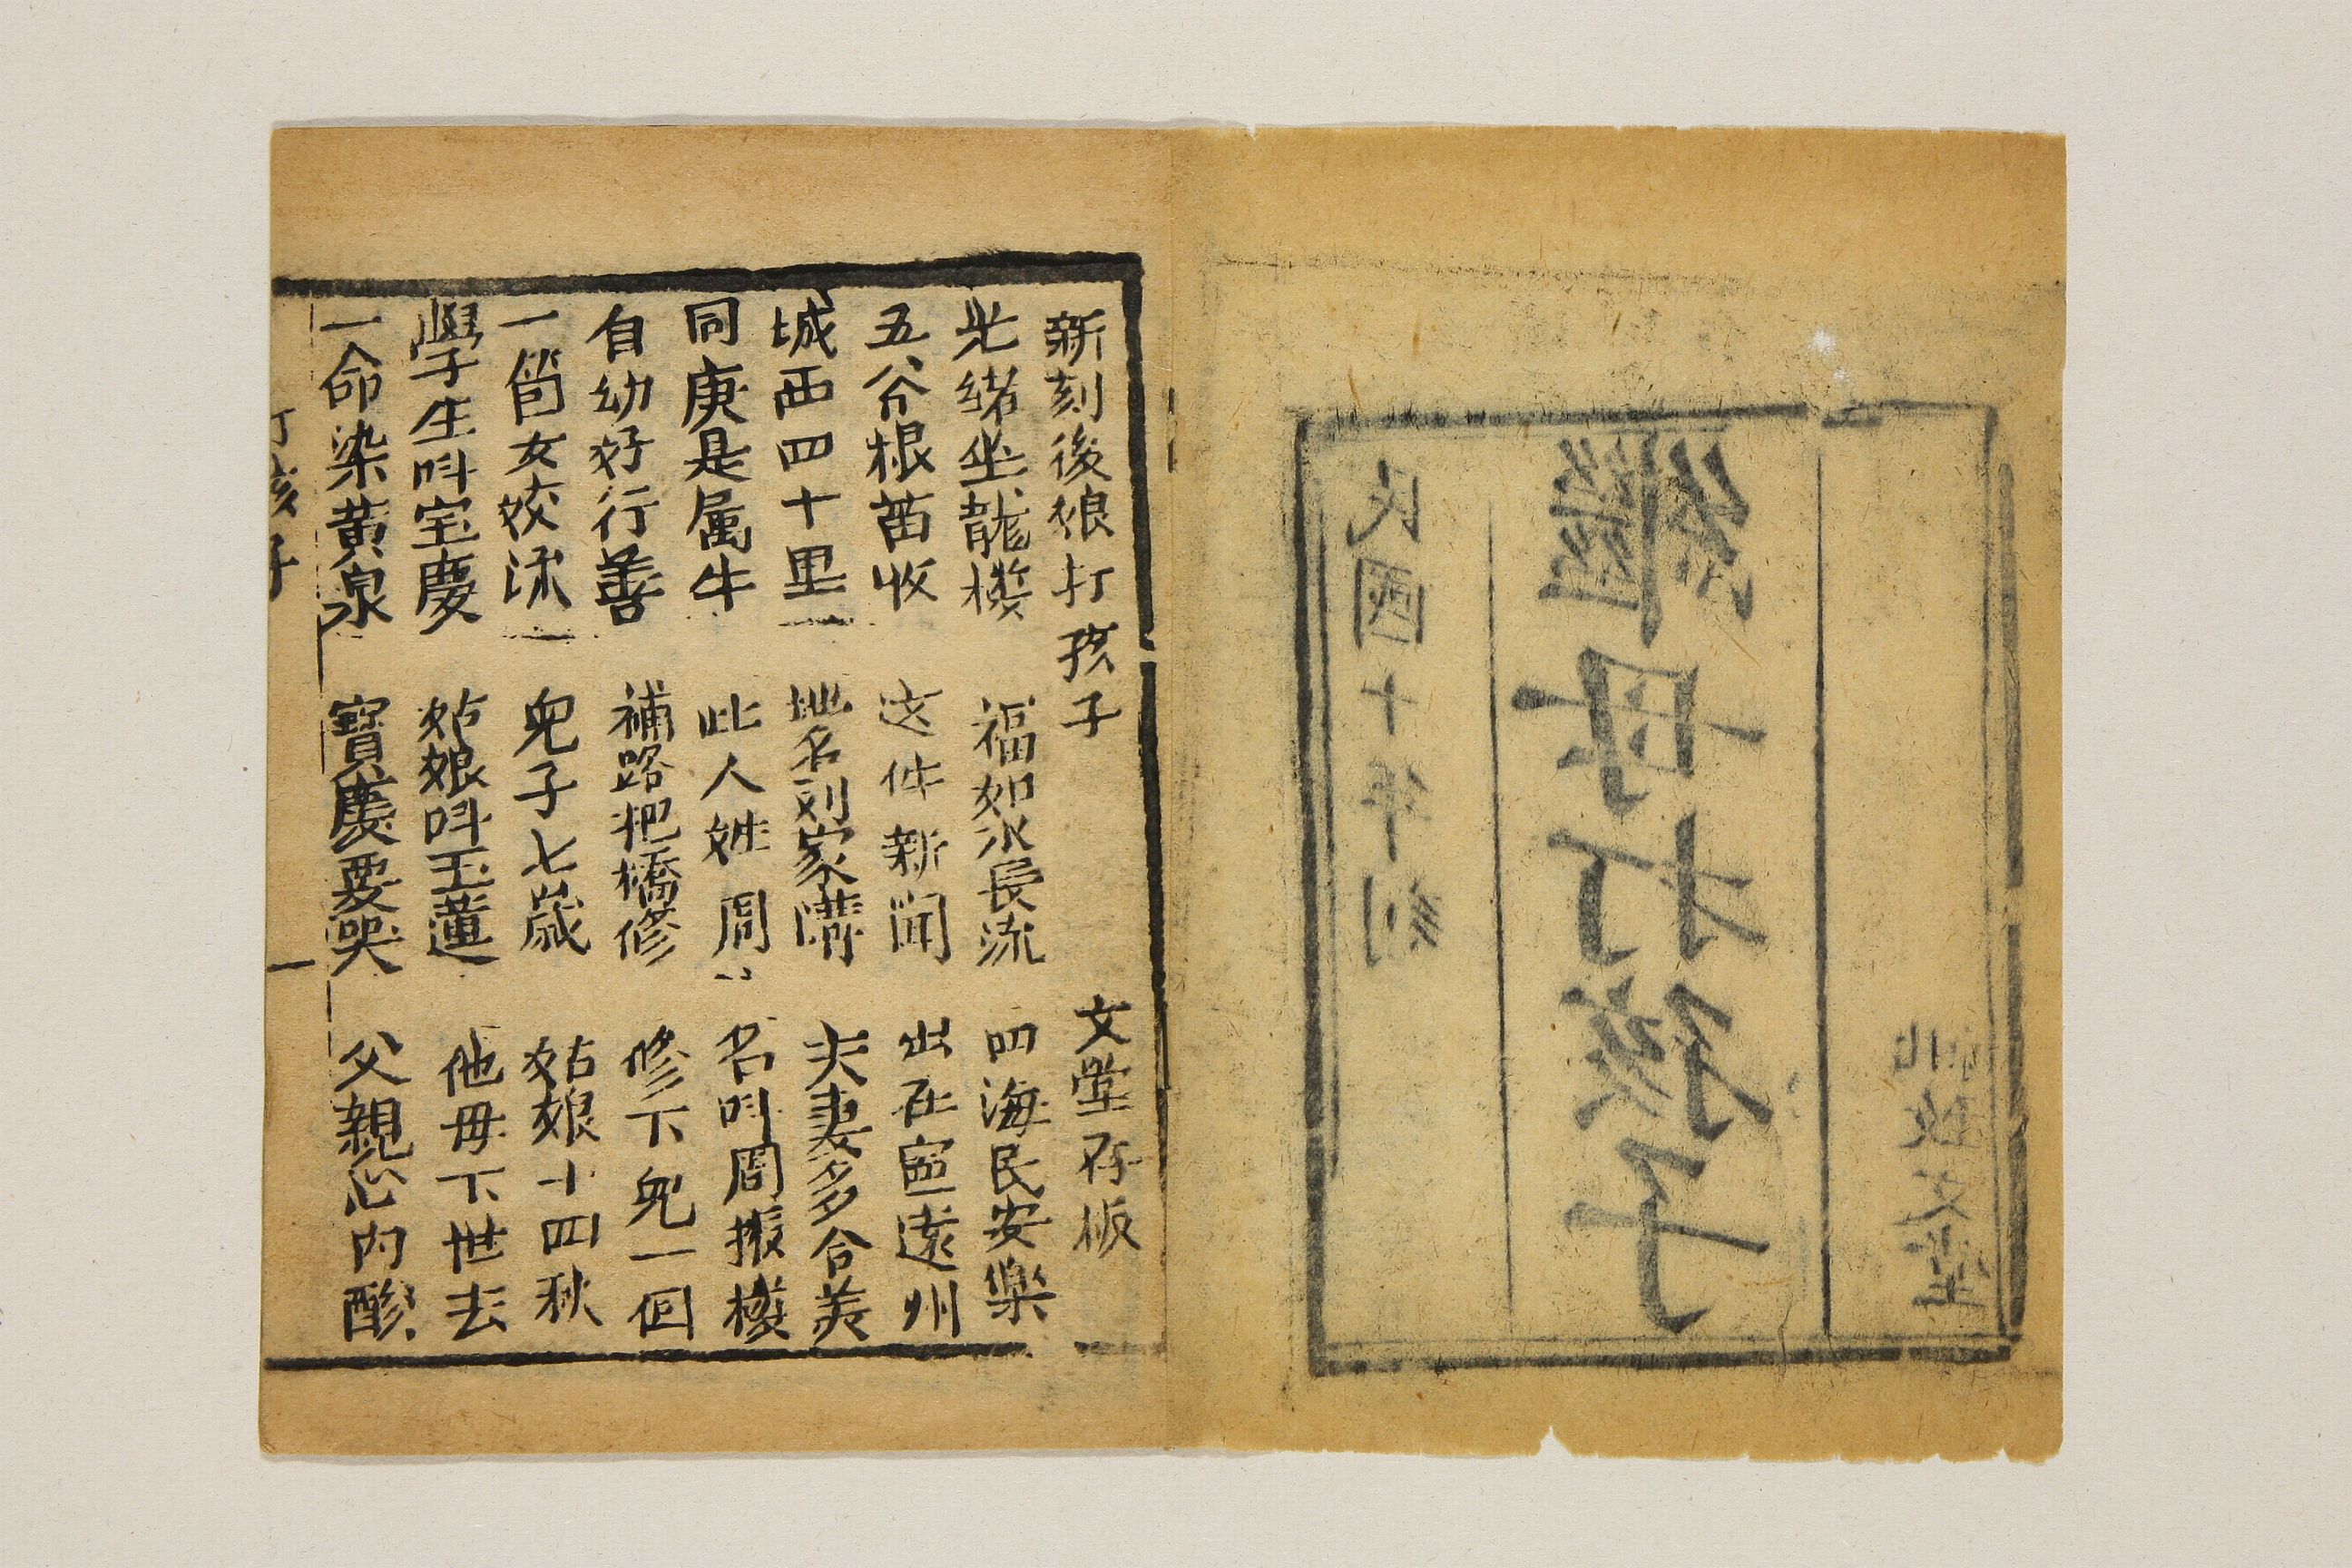 民國十年刻
繼母打孩子
文堂
新刻後娘打孩子 文堂存板
光绪坐龍楼 福如水長流 四海民安樂
五谷根苗收 这件新聞 出在寧遠州
城西四十里 地名刘家溝 夫妻多合美
同庚是属牛 此人姓周 名呌周振楼
自幼好行善 補路把橋修 修下兒一個
一個女姣流 兒子七歲 姑娘十四秋
學生呌宝慶 姑娘呌玉蓮 他毋下世去
一命染黄泉 寶慶要哭 父親心内酸
打孩子 一